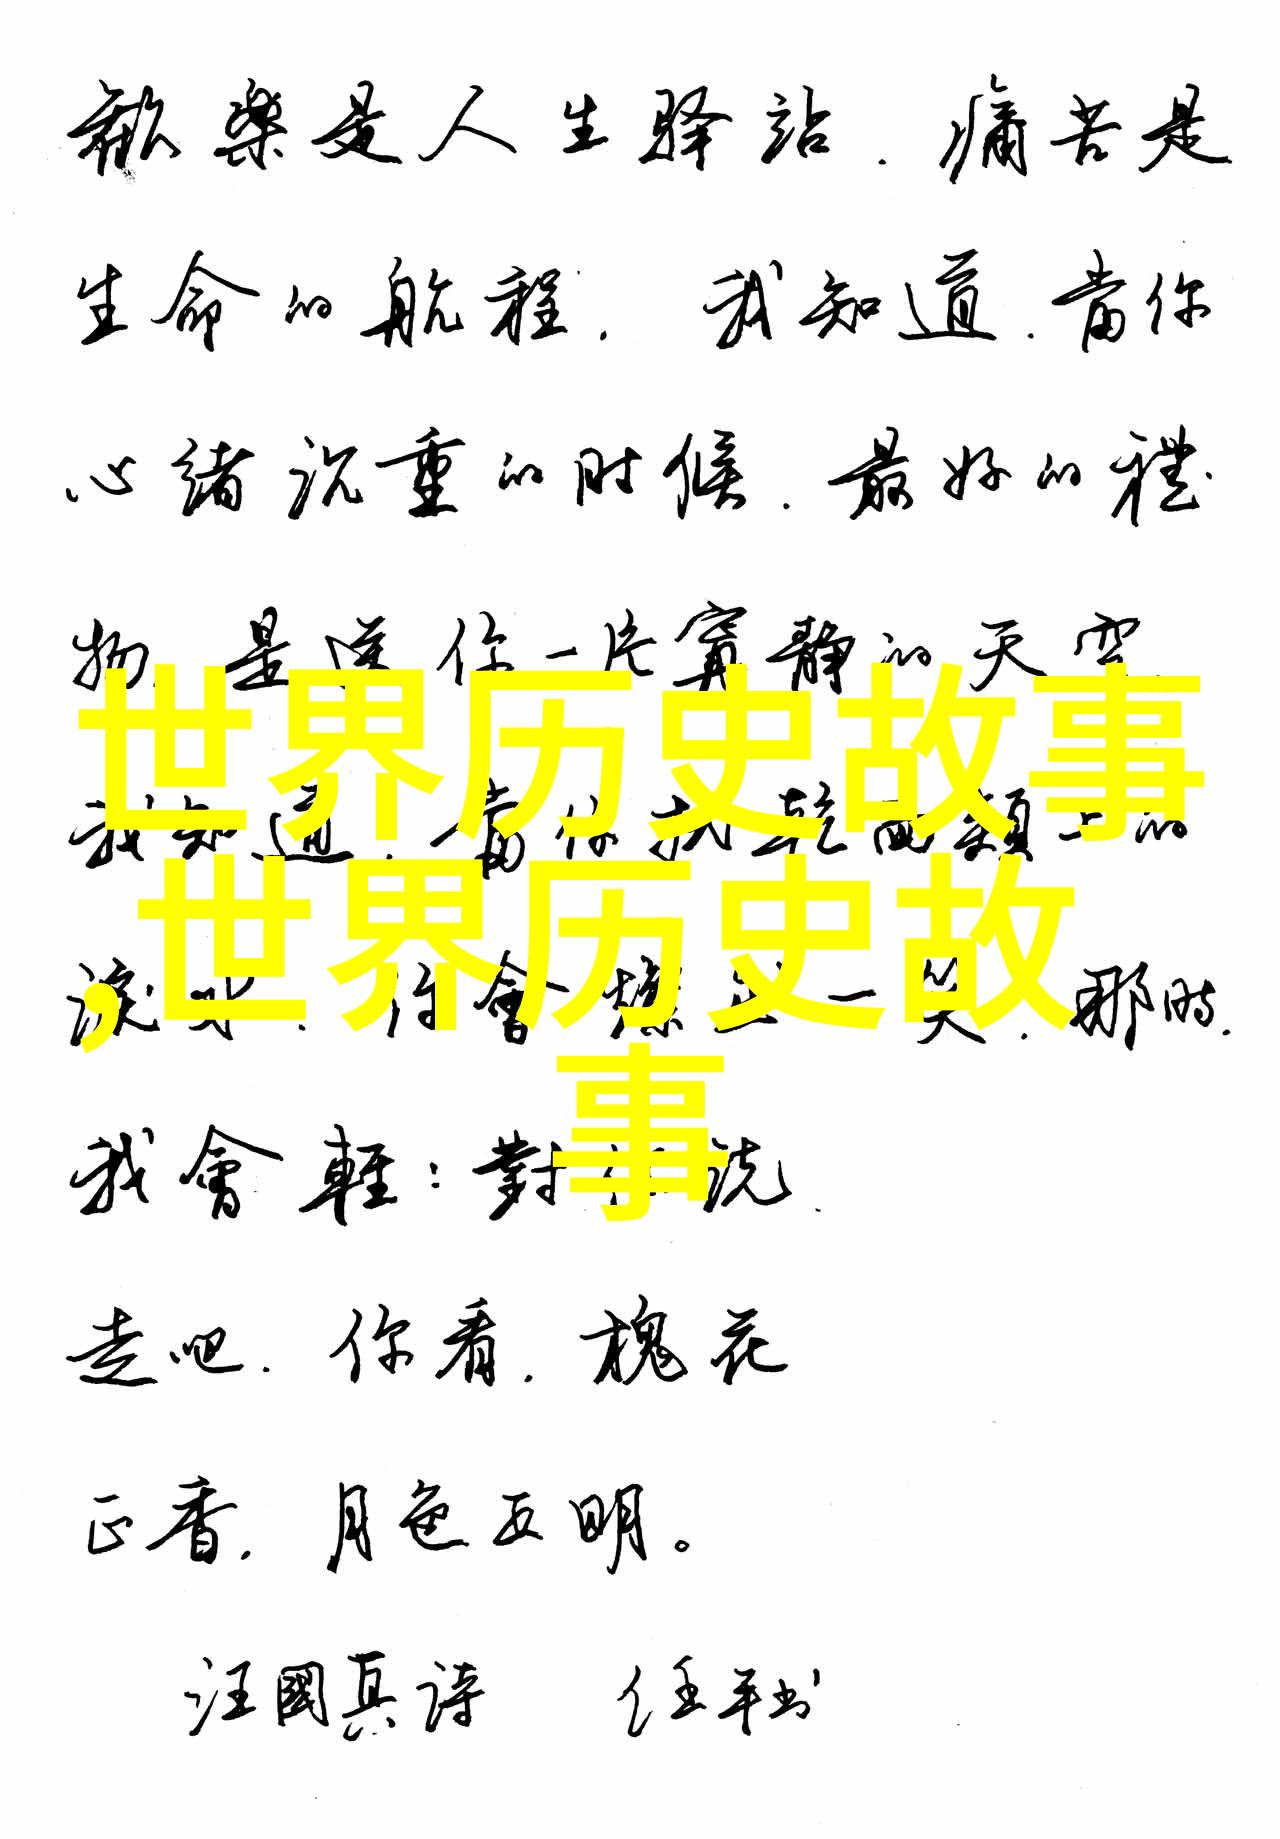 歡樂是人生驿站.痛苦是
生命的航程.我知道.當你
心緒沉重的时候.最好的禮
物.是送你一片寧靜的天空.
世界历史故事
我知道.當你 乾面頰上的
,世界历史故
淚水.你會燦 一笑.那時.
事
我會輕:對你说.
走吧.你看.槐花
正香.月色正明。
汪國真詩 任平书